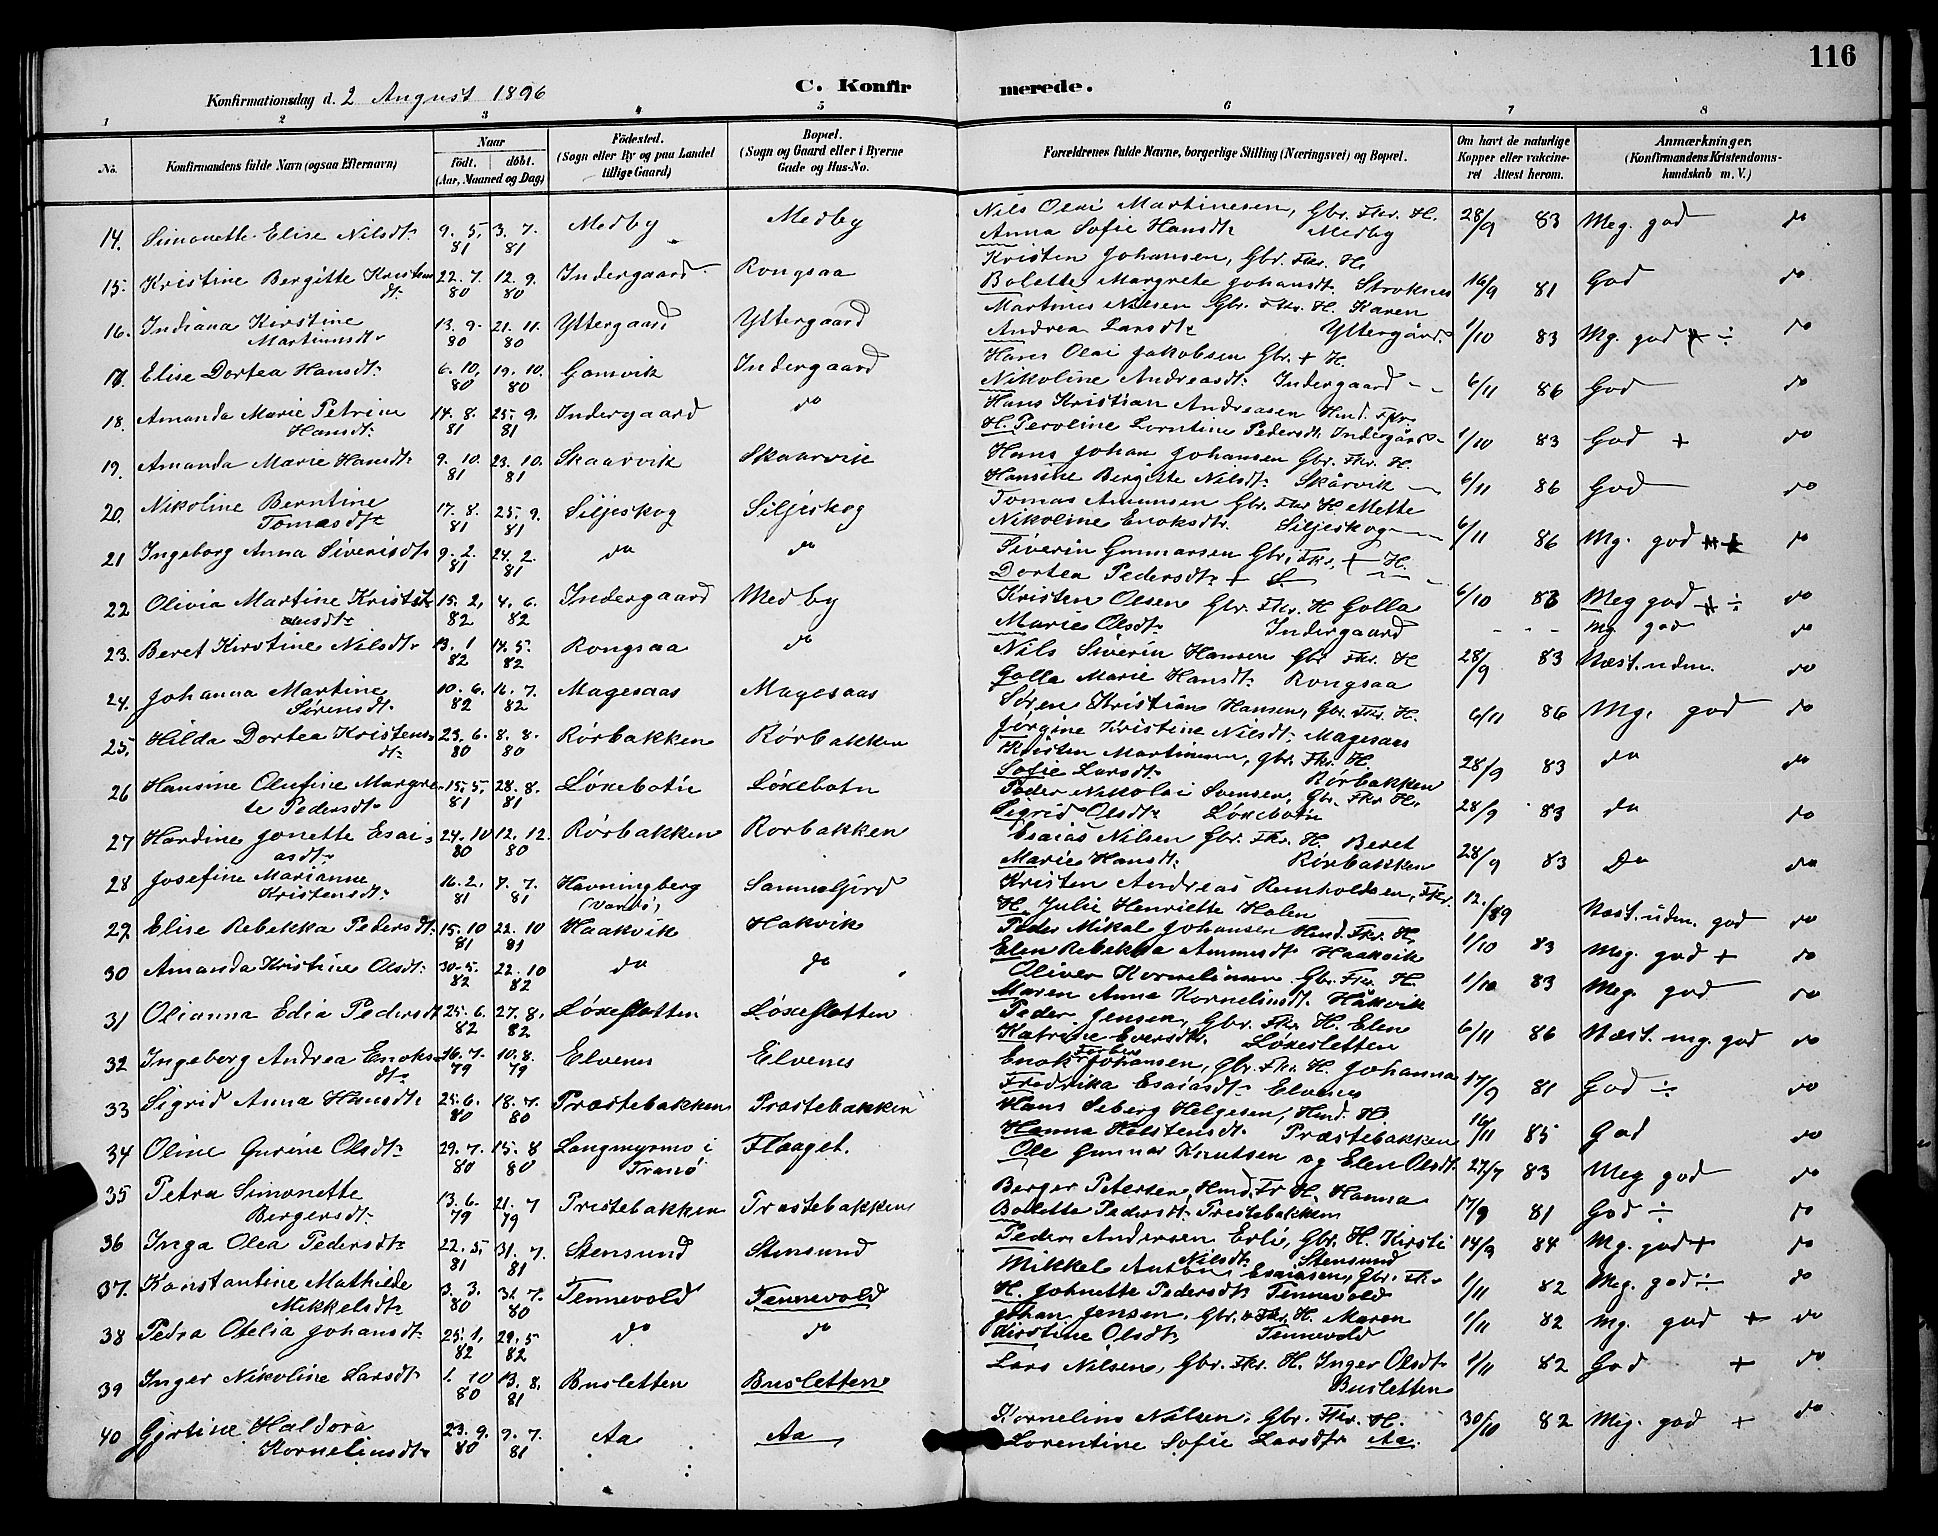 116
Konfirmationsdag d. 2 August 1896
C. Konfirmerede.
1 2 3 4 5 6 7 8
No. Konfirmandens fulde Navn (ogsaa Efternavn) Naar födt. döbt. (Aar, Maaned og Dag) Födested. (Sogn eller By og paa Landet tillige Gaard) Bopæl. (Sogn og Gaard eller i Byerne Gade og Hus-No. Forældrenes fulde Navne, borgerlige Stilling (Næringsvei) og Bopæl. Om havt de naturlige Kopper eller vakcineret Attest herom. Anmærkninger. (Konfirmandens Kristendomskundskab m. V.)
14. Simonette Elise Nilsdt. 9. 5. 81 3. 7. 81 Medby Medby Nils Olai Martinesen, Gbr. Fkr. H. Anna Sofie Hansdt. Medby 28/9 83 Meg. god do
15. Kristine Bergitte Kristensdt. 22. 7. 80 12. 9. 80 Indergaard Rongsaa Kristen Johansen, Gbr. Fkr. H. Bolette Margrete Johansdt. Stroknes 16/9 81 God do
16. Indiana Kirstine Martinusdt. 13. 9. 80 21. 11. 80 Yttergaard Yttergaard Martinus Nilsen Gbr. Fkr. H. Karen Andrea Larsdt. Yttergård 1/10 83 Mg. god ÷ do
17. Elise Dortea Hansdt. 6. 10. 80 19. 10. 80 Gamvik Indergaard Hans Olai Jakobsen Gbr. + H. Nikoline Andreasdt. Indergaard 6/11 86 God do
18. Amanda Marie Petrine Hansdt. 14. 8. 81 25. 9. 81 Indergaard do Hans Kristian Andreasen Hmd. Fkr. H. Peroline Lorntine Pedersdt. Indergård 1/10 83 God + do
19. Amanda Marie Hansdt. 9. 10. 81 23. 10. 81 Skaarvik Skaarvik Hans Johan Johansen Gbr. Fkr. H. Hansine Bergitte Nilsdt. Skårvik 6/11 86 God do
20. Nikoline Berntine Tomasdt. 17. 8. 81 25. 9. 81 Siljeskog Siljeskog Tomas Amunsen Gbr. Fkr H. Mette Nikoline Enoksdtr. Siljeskog 6/11 86 Mg. god do
21 Ingeborg Anna Siverisdt. 9. 2. 81 24. 2. 81 do do Siverin Gunnarsen Gbr. Fkr. + H. Dortea Pedersdt. + S
22 Olivia Martine Kristiansdt. 15. 2. 82 4. 6. 82 Indergaard Medby Kristen Olsen Gbr. Fkr. H Golla Marie Olsdt. Indergaard 6/10 83 Meg god ÷ do
- - - Mg god do
23. Beret Kirstine Nilsdt. 13. 1 82 14. 5. 82 Rongsaa do Nils Siverin Hansen Gbr Fkr. H Golla Marie Hansdt. Rongsaa 28/9 83 Næst. udm. do
24. Johanna Martine Sørensdt. 10. 6. 82 16. 7. 82 Magesaas Magesaas Søren Kristian Hansen, Gbr. Fkr. H. Jørgine Kristine Nilsdt. Magesaas 6/11 86 Mg. god do
25. Hilda Dortea Kristensdt. 23. 6. 80 8. 8. 80 Rörbakken Rörbakken Kristen Martinusen, Gbr. Fkr. H. Sofie Larsdt. Rörbakken 28/9 83 do do
26 Hansine Olufine Margrete Pedersdt. 15. 5. 81 28. 8. 81 Löxebotn Löxebotn Peder Nikolai Svensen, Gbr. Fkr. H. Sigrid Olsdt. Löxebotn 28/9 83 do do
27 Hardine Jonette Esaiasdt. 24. 10 80 12. 12. 80 Rörbakken Rorbakken Esaias Nilsen Gbr. Fkr. H. Beret Marie Hansdt. Rörbakken 28/9 83 Do do
28 Josefine Marianne Kristensdt. 16. 2. 81 7. 7. 81 Havningberg (Vardø) Sammefjord Kristen Andreas Reinholdsen, Fkr. H. Julie Henriette Holm 12./89 Næst. udm. god do
29. Elise Rebekka Pedersdt. 15. 10 81 22. 10 81 Haakvik Hakvik Peder Mikal Johansen Hmd. Fkr. H. Elen Rebekka Amundt Haakvik 1/10 83 Meg. god + do
30 Amanda Kristine Olsdt. 30. 5. 82 22. 10 82 do do Oliver Kornelinsen Gbr. Fkr. H Maren Anna Kornelinsdt. Håkvik 1/10 83 Meg. god do
31 Olianna Edia Pedersdt 25. 6. 82 27. 8. 82 Löxesletten Löxesletten Peder Jensen, Gbr. Fkr. H. Elen Katrine Eversdt. Löxesletten 6/11 86 Næst. mg. god do
32 Ingeborg Andrea Enoksdt. 16. 7. 79 10. 8. 79 Elvenes Elvenes Enok Johansen, Gbr. Fkr. H. Johanna Fredrika Esaiasdt. Elvenes 17/9 81 God ÷ do
33 Sigrid Anna Hansdt. 25. 6. 80 18. 7. 80 Præstebakken Præstebakken Hans Seberg Helgesen, Hmd. H. Hanna Holstensdt. Præstebakken 16/11 85 God do
34 Oline Gurine Olsdt. 29. 7. 80 15. 8 80 Langmyrmo i Tranö Flaaget. Ole Gunnar Knutsen og Elen Olsdt. 27/7 83 Meg god do
35 Petra Simonette Bergersdt. 13. 6. 79 21. 7 79 Prestebakken Præstebakken Berger Petersen, Hmd. Fr H. Hanna Bolette Pedersdt. Prestebakken 17/9 81 God ÷ do
36 Inga Olea Pedersdt. 22. 5. 81 31. 7. 81 Stensund Stensund Peder Andersen Erli, Gbr. H. Kirsti Nilsdt. Stensund 14/9 84 Mg. god + do
37. Konstantine Mathilde Mikkelsdt. 3. 3. 80 31. 7. 80 Tennevold Tennevold Mikkel Anton Esaiasen, Gbr. Fkr H. Johnette Pedersdt. Tennevold 1/11 82 Meg. god ÷ do
38 Pedra Otelia Johansdt. 25. 1. 82 29. 5 82 do do Johan Jensen, Gbr. & Fkr. H. Maren Kirstine Olsdt. Tennevold 1/11 82 Mg. god + do
39 Inger Nikoline Larsdt. 1. 10 80 13. 8. 81 Busletten Busletten Lars Nilsen, Gbr. Fkr. H. Inger Olsdt. Busletten 1/11 82 God + do
40 Gjertine Haldora Kornelinsdt. 23. 9. 80 9. 7. 81 Aa Aa Kornelius Nilsen, Gbr. Fkr. H. Lorentine Sofie Larsdtr Aa. 30/10 82 Mg. god + do